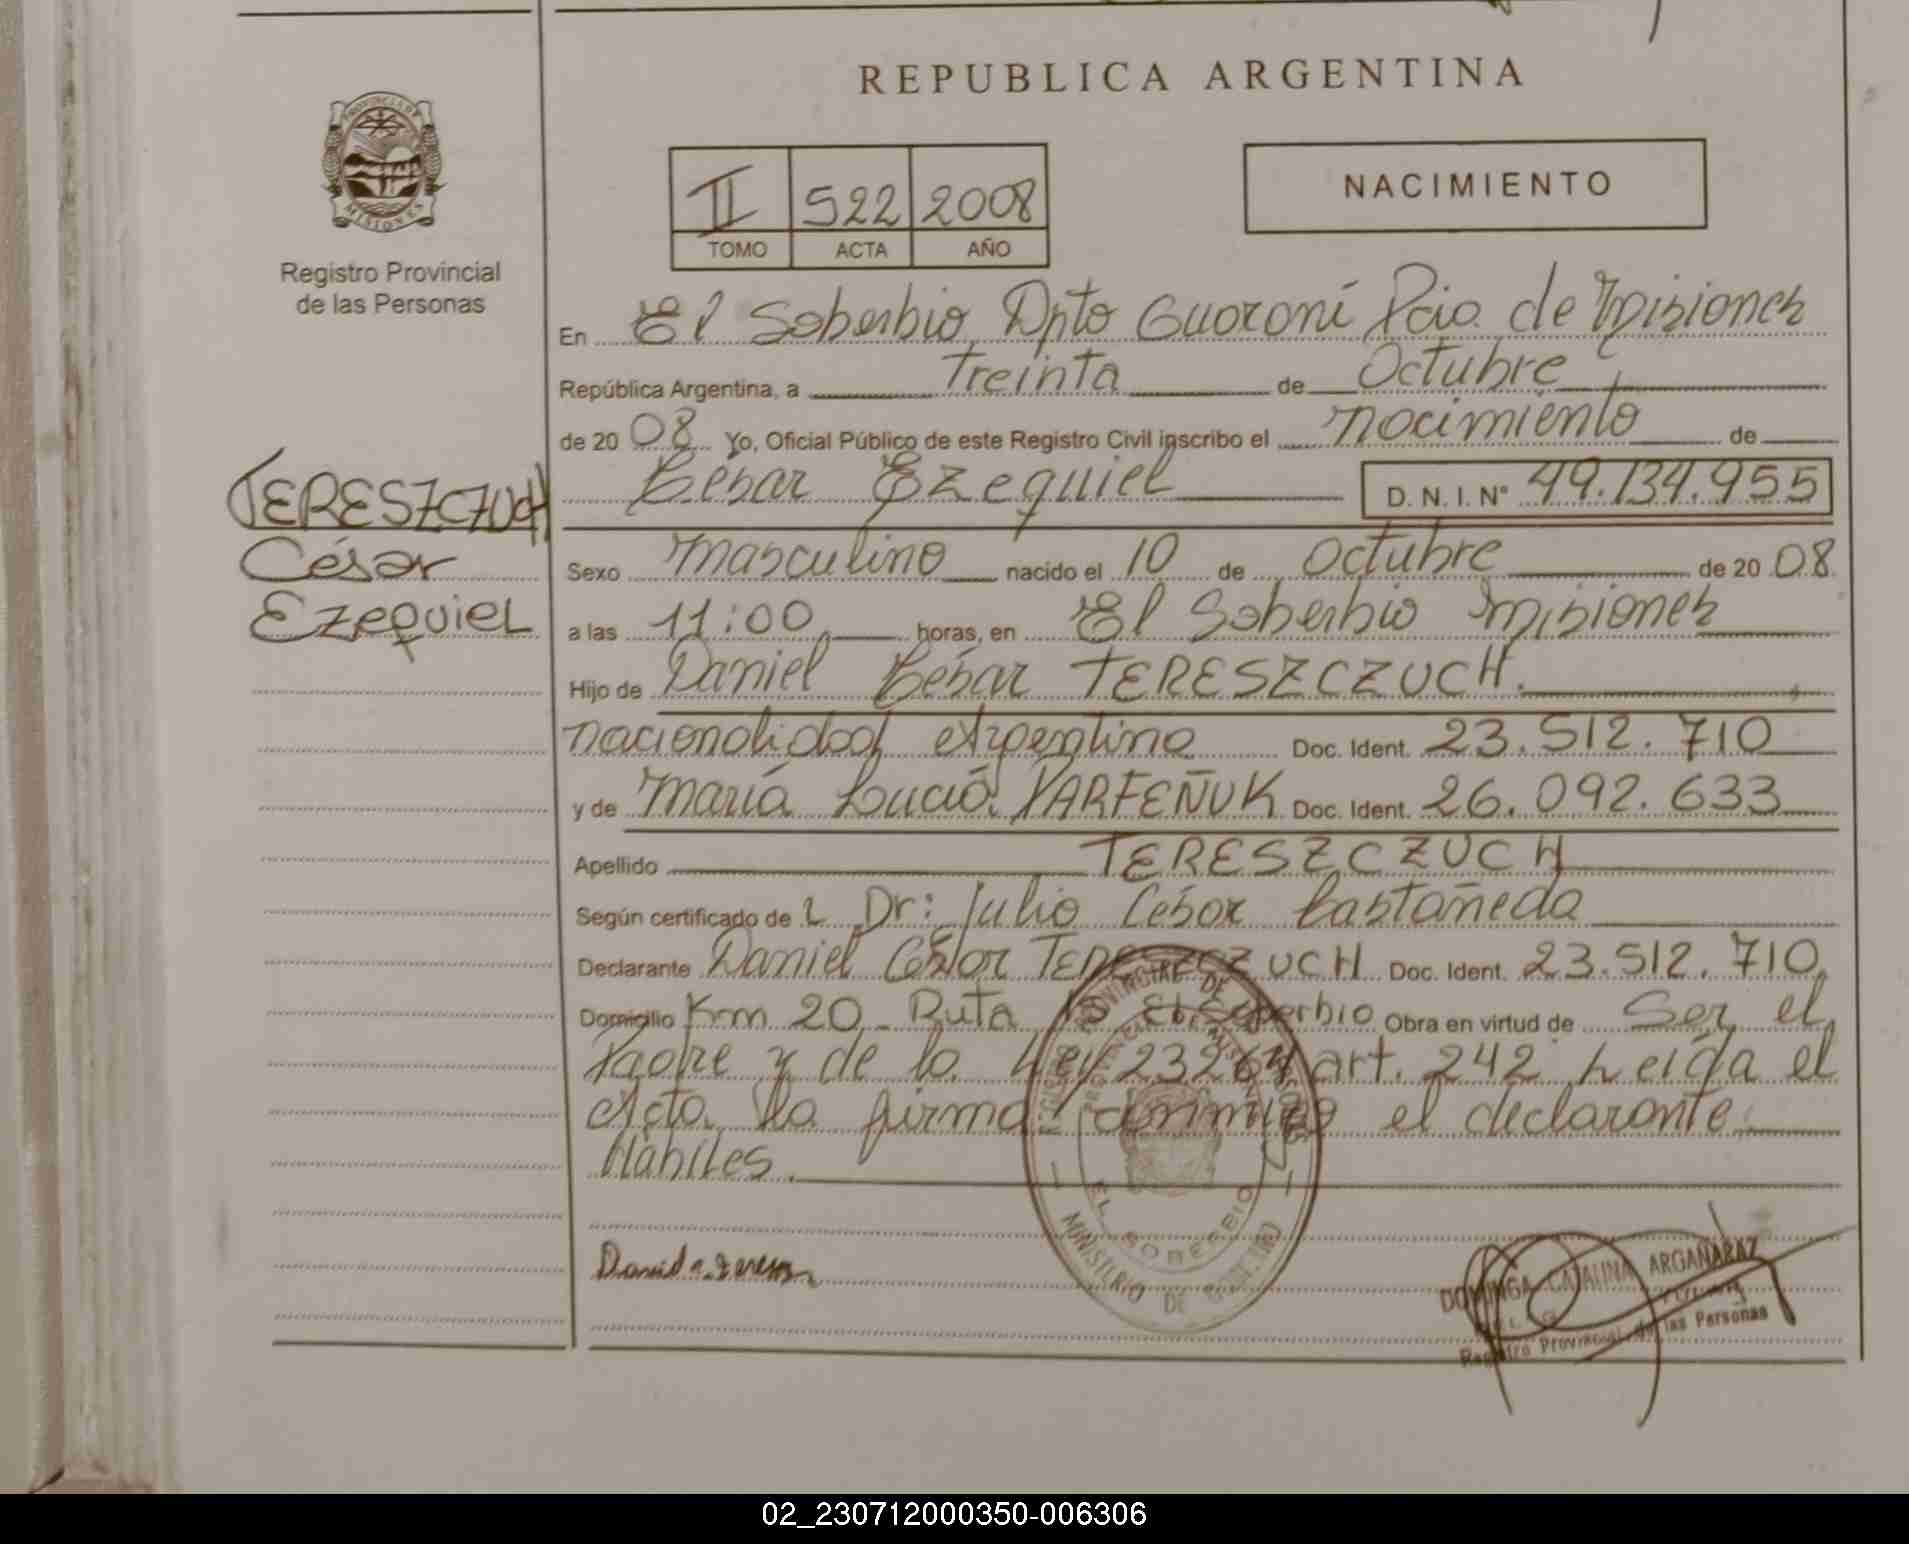 REPUBLICA ARGENTINA
PROVINCIA DE
MISIONES
Registro Provincial
de las Personas
II 522 2008
TOMO ACTA AÑO
NACIMIENTO
En El Soberbio Dpto Guaraní Pcia. de Misiones
República Argentina, a Treinta de Octubre
de 2008 Yo, Oficial Público de este Registro Civil inscribo el nacimiento de
César Ezequiel D.N.I. Nº 49.134.955
TERESZCZUCH
César
Ezequiel
Sexo masculino nacido el 10 de Octubre de 2008
a las 11:00 horas, en El Soberbio Misiones
Hijo de Daniel César TERESZCZUCH.
nacionalidad Argentina Doc. Ident. 23.512.710
y de María Lucía PARFEÑUK Doc. Ident. 26.092.633
Apellido TERESZCZUCH
Según certificado de L Dr: Julio César Castañeda
Declarante Daniel César TERESZCZUCH Doc. Ident. 23.512.710
Domicilio Km 20 - Ruta 13 El Soberbio Obra en virtud de Ser el
Padre y de la Ley 23264 art. 242 Leída el
Acta la firma conmigo el declarante
Hábiles.
REGISTRO PROVINCIAL DE LAS PERSONAS
PROVINCIA DE MISIONES
EL SOBERBIO
MINISTERIO DE GOBIERNO
DOMINGA CATALINA ARGAÑARAZ
Registro Provincial de las Personas
02_230712000350-006306